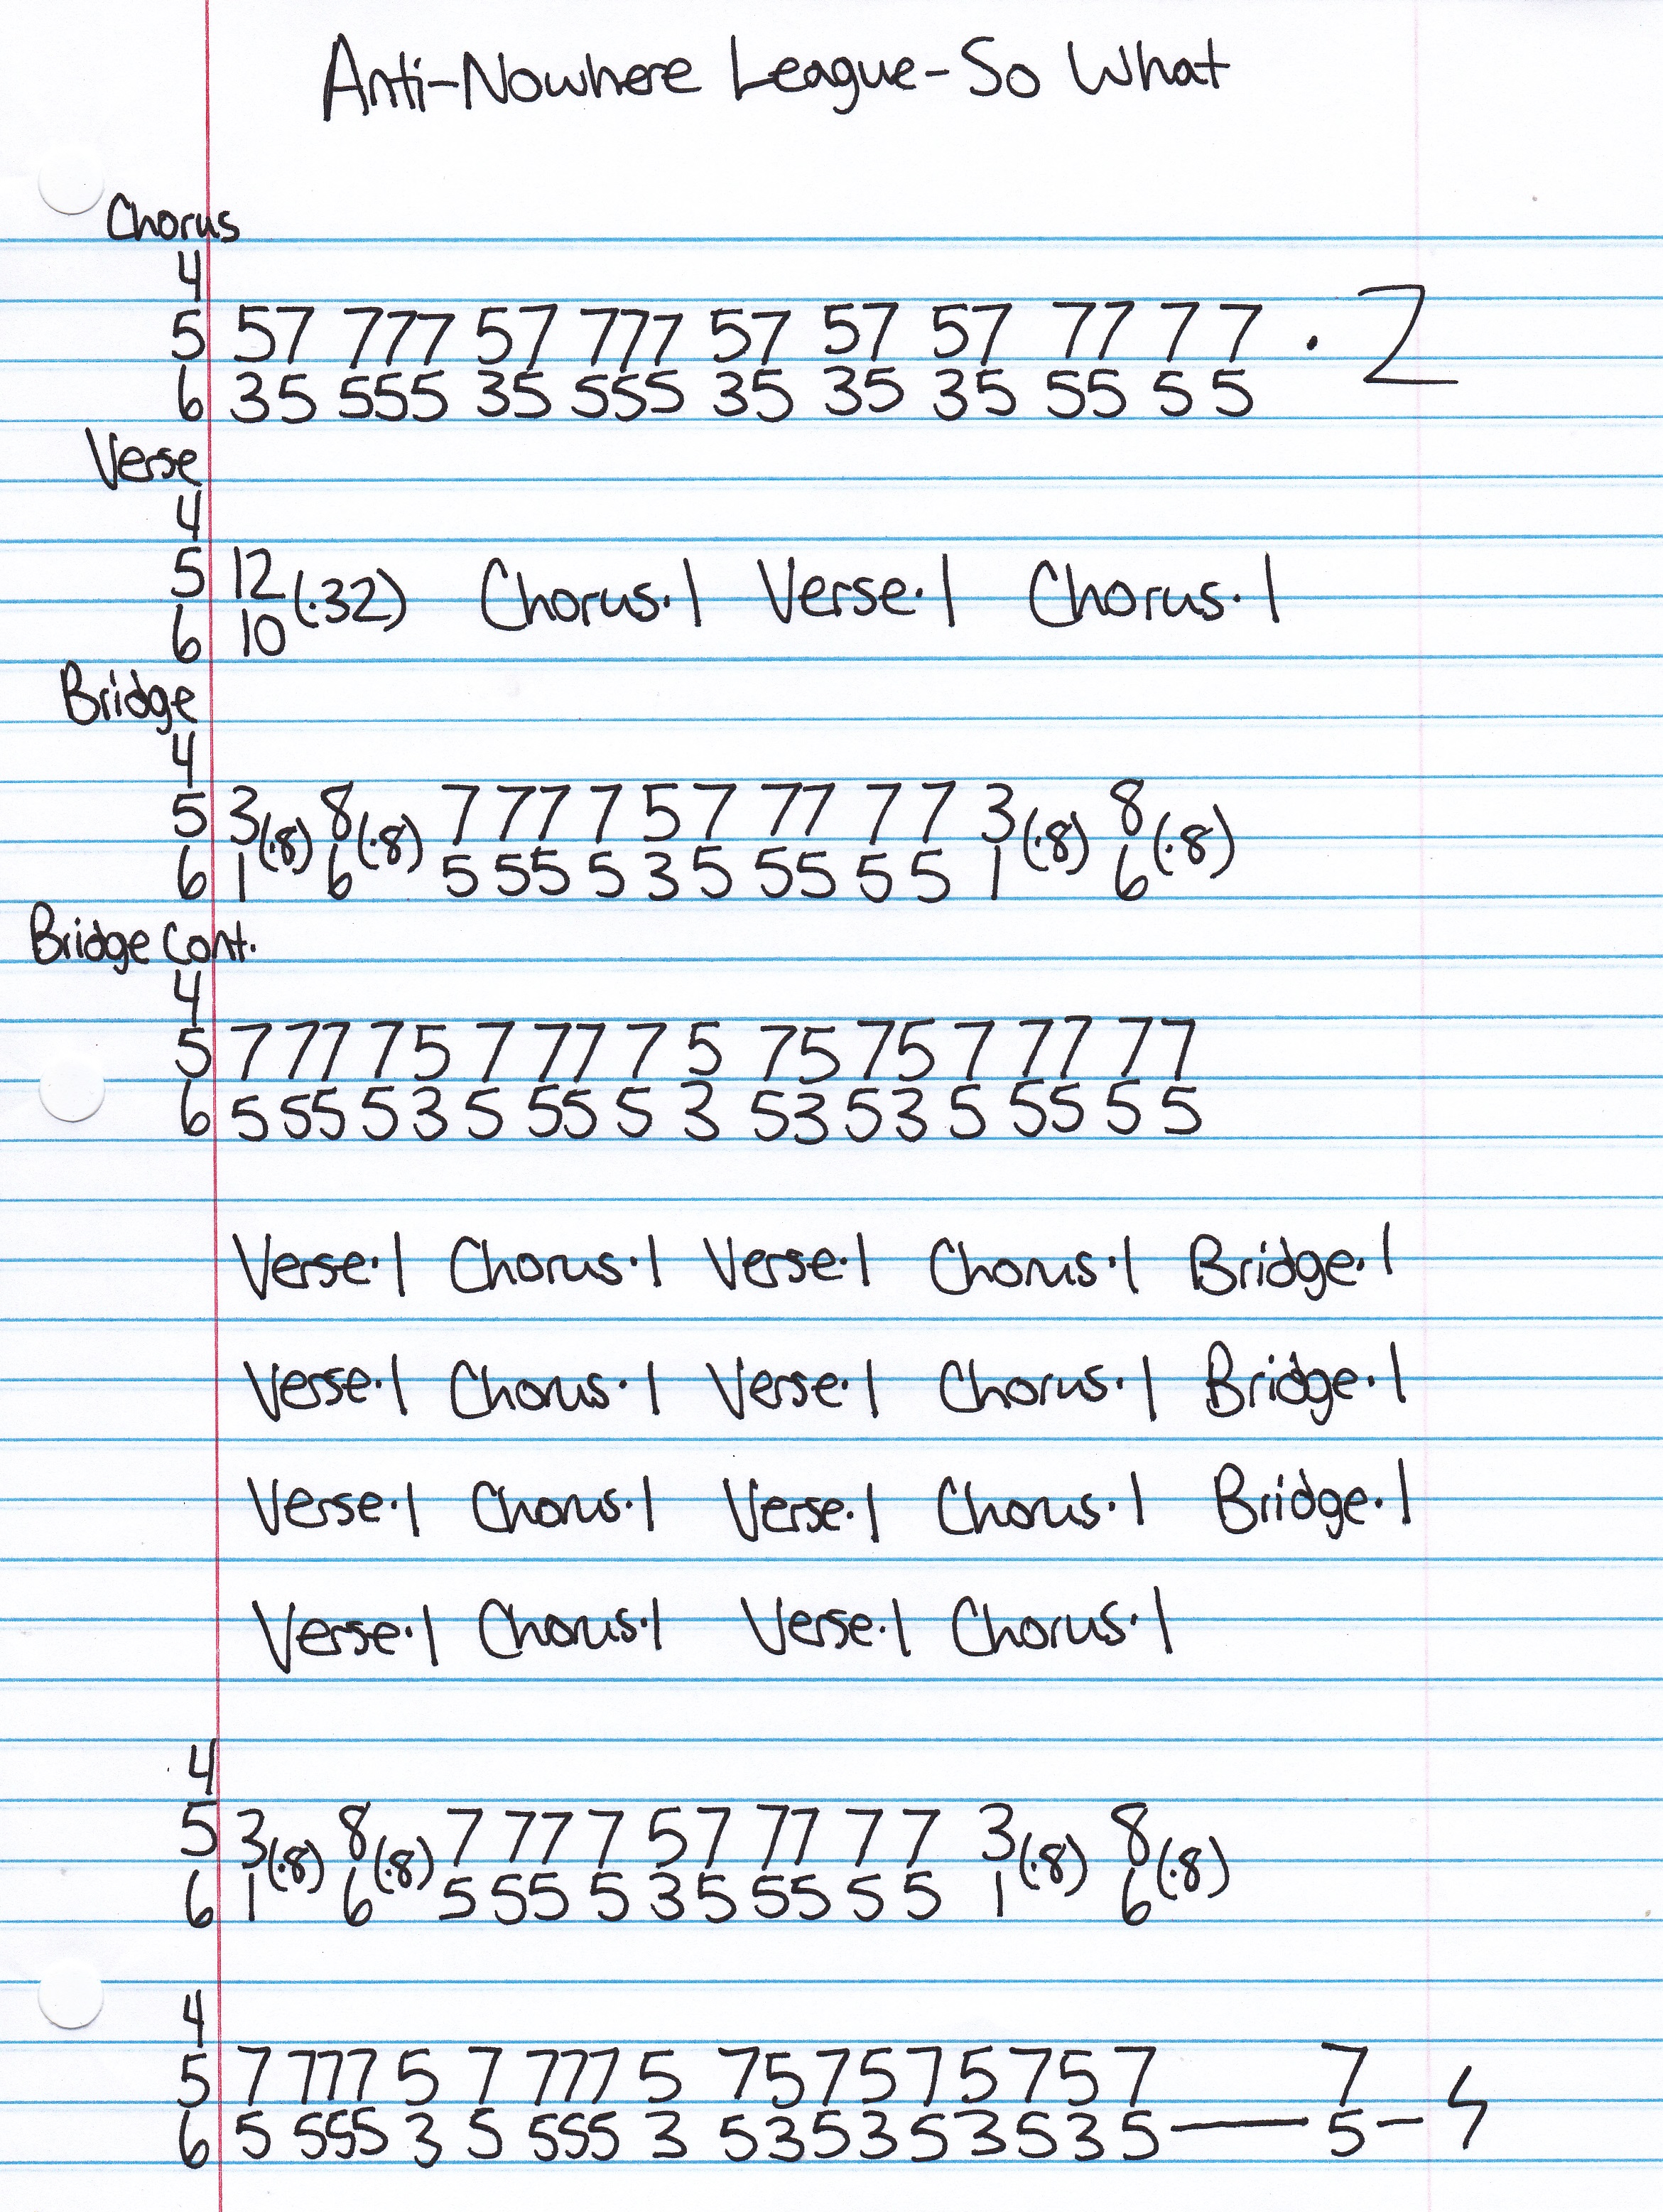 Anti-Nowhere League - So What
Chorus
4
5 57 777 57 777 57 57 57 77 7 7 · 2
6 35 555 35 555 35 35 35 55 5 5
Verse
4
5 12 (·32) Chorus·1 Verse·1 Chorus·1
6 10
Bridge
4
5 3(·8) 8(·8) 7 77 7 5 7 77 7 7 3(·8) 8(·8)
6 1 6 5 55 5 3 5 55 5 5 1 6
Bridge Cont.
4
5 7 77 7 5 7 77 7 5 75 75 7 77 7 7
6 5 55 5 3 5 55 5 3 53 53 5 55 5 5
Verse·1 Chorus·1 Verse·1 Chorus·1 Bridge·1
Verse·1 Chorus·1 Verse·1 Chorus·1 Bridge·1
Verse·1 Chorus·1 Verse·1 Chorus·1 Bridge·1
Verse·1 Chorus·1 Verse·1 Chorus·1
4
5 3(·8) 8(·8) 7 77 7 5 7 77 7 7 3(·8) 8(·8)
6 1 6 5 55 5 3 5 55 5 5 1 6
4
5 7 777 5 7 777 5 75 75 75 75 7 7
6 5 555 3 5 555 3 53 53 53 53 5 — 5 –